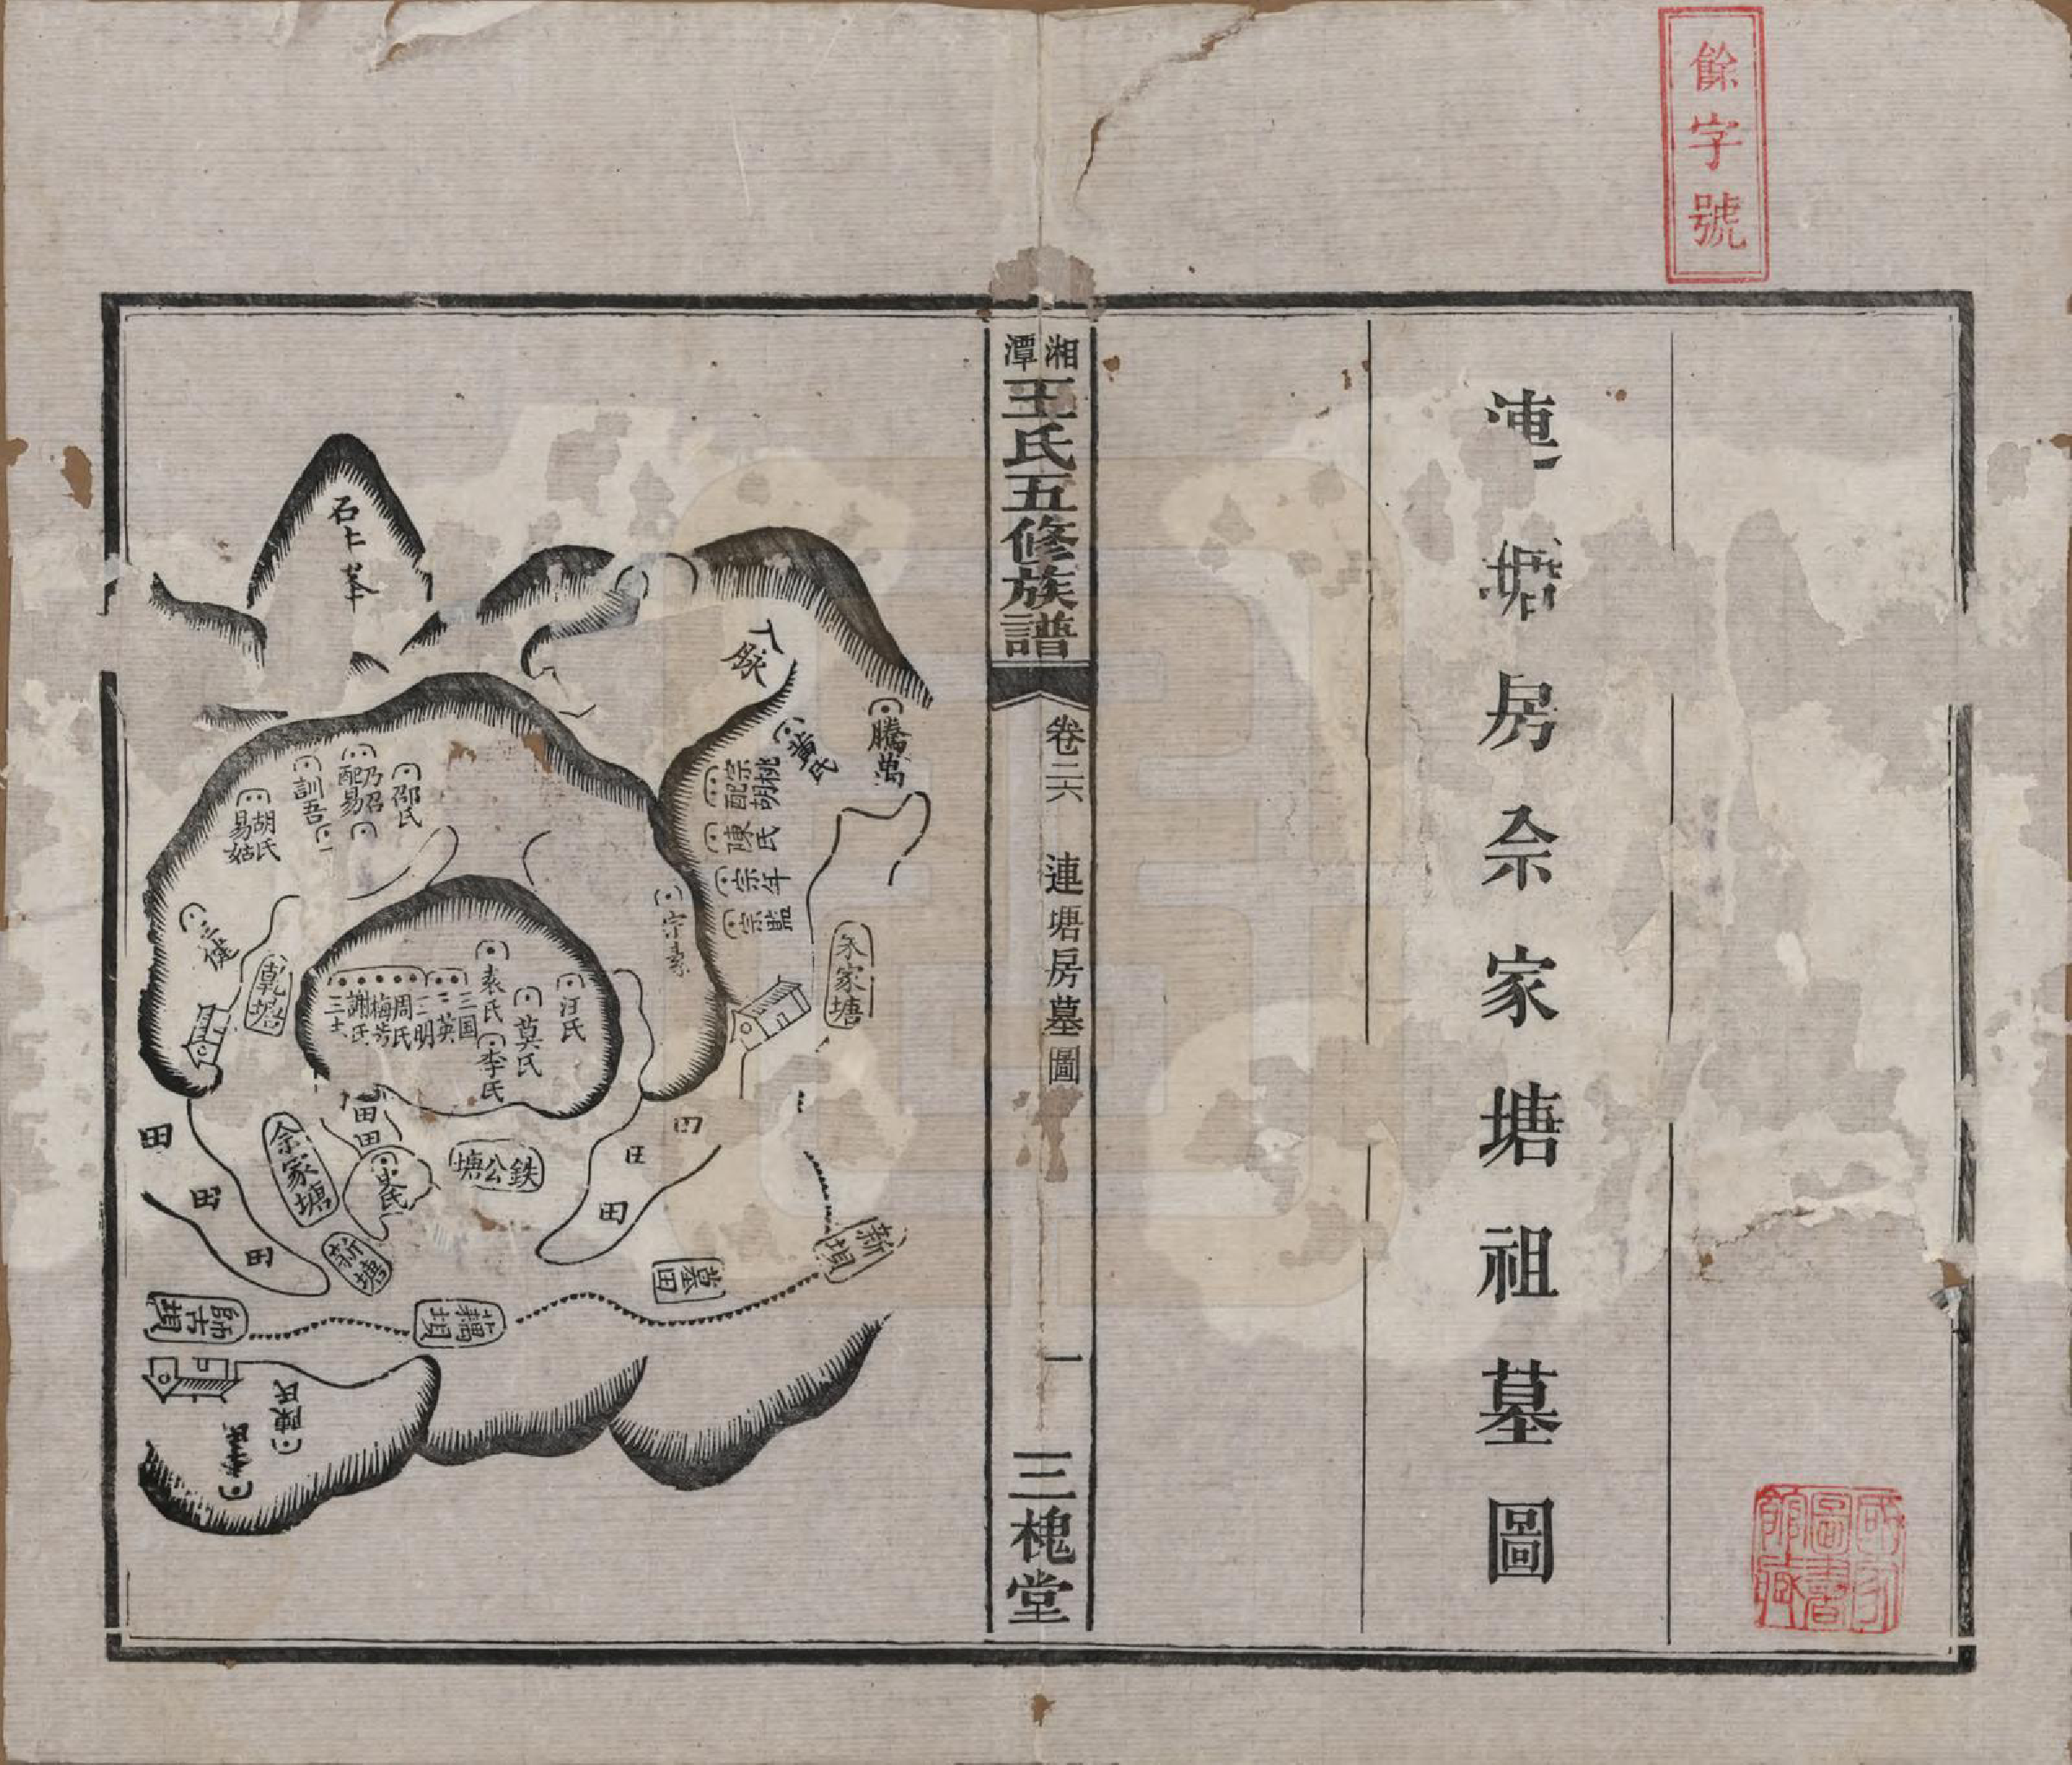 餘字號
連塘房佘家塘祖墓圖
國家圖書館藏
湘潭王氏五修族譜
卷二六
連塘房墓圖
一
三槐堂
騰萬
黃氏
桃胡
宗配
陳氏
宗年
宗監
朱家塘
新壩
石上峯
邵氏
乃召
配易
訓吾
胡氏
易姑
三健
乾塘
宗豪
汪氏
莫氏
袁氏
李氏
三国
三英
二明
周氏
梅芳
謝氏
三士
田
田
田
田
鉄公塘
佘家塘
新塘
田
田
田
墓田
藕壩
陳氏
李氏